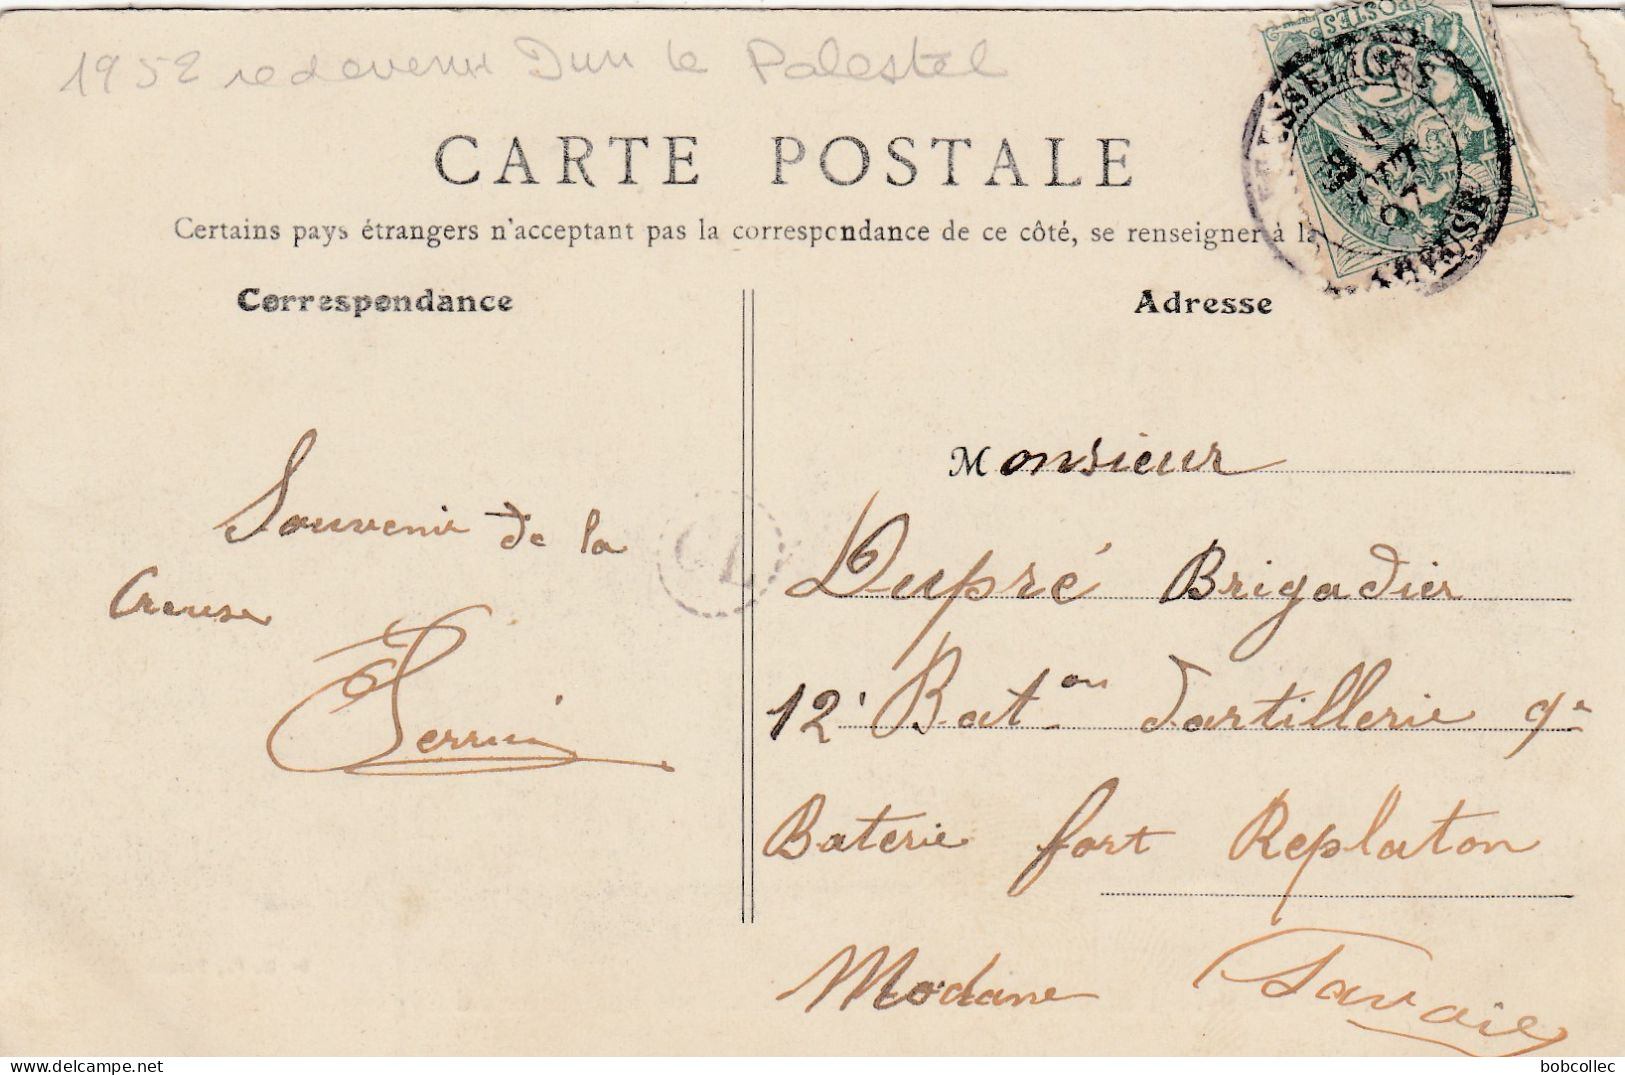 1952 redevenu Dun le Palestel
CARTE POSTALE
Certains pays étrangers n'acceptant pas la correspondance de ce côté, se renseigner à la
Correspondance
Adresse
POSTES
5
CREUSE
07
Souvenir de la
Creuse
Perrin
OL
Monsieur
Dupré Brigadier
12e Baton d'artillerie 9e
Baterie fort Replaton
Modane Savoie
bobcollec